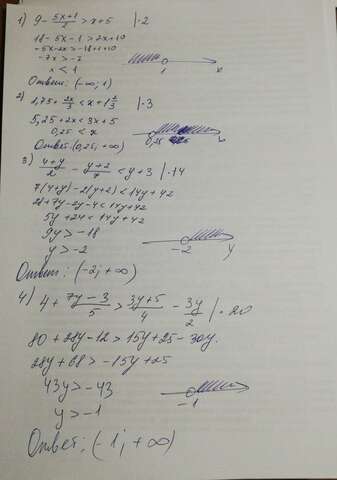 1) 9 - (5x+1)/2 > x+5 |·2
18 - 5x - 1 > 2x+10
-5x-2x > -18+1+10
-7x > -7
x < 1
1 x
Ответ: (-∞; 1)
2) 1,75 + 2x/3 < x + 1 2/3 |·3
5,25 + 2x < 3x + 5
0,25 < x
0,25
Ответ: (0,25; +∞)
3) (4+y)/2 - (y+2)/7 < y+3 |·14
7(4+y) - 2(y+2) < 14y + 42
28+7y-2y-4 < 14y+42
5y + 24 < 14y + 42
9y > -18
y > -2
-2 y
Ответ: (-2; +∞)
4) 4 + (7y-3)/5 > (3y+5)/4 - 3y/2 |·20
80 + 28y - 12 > 15y + 25 - 30y.
28y + 68 > -15y + 25
43y > -43
y > -1
-1
Ответ: (-1; +∞)